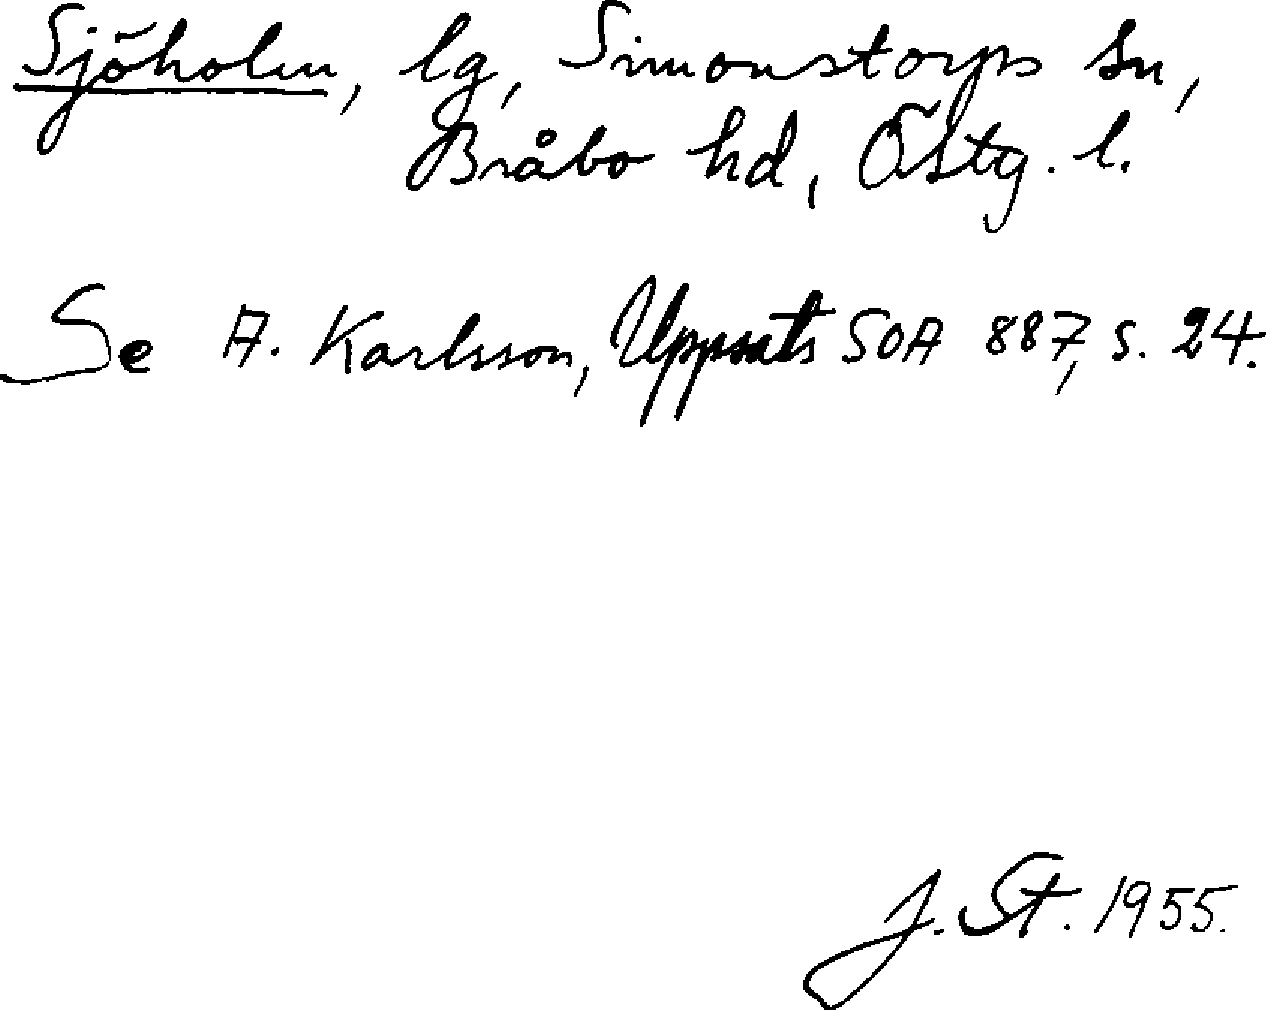 Sjöholm, lg, Simonstorps sn,
Bråbo hd, Östg. l.
Se A. Karlsson, Uppsats SOA 887, s. 24.
J. St. 1955.